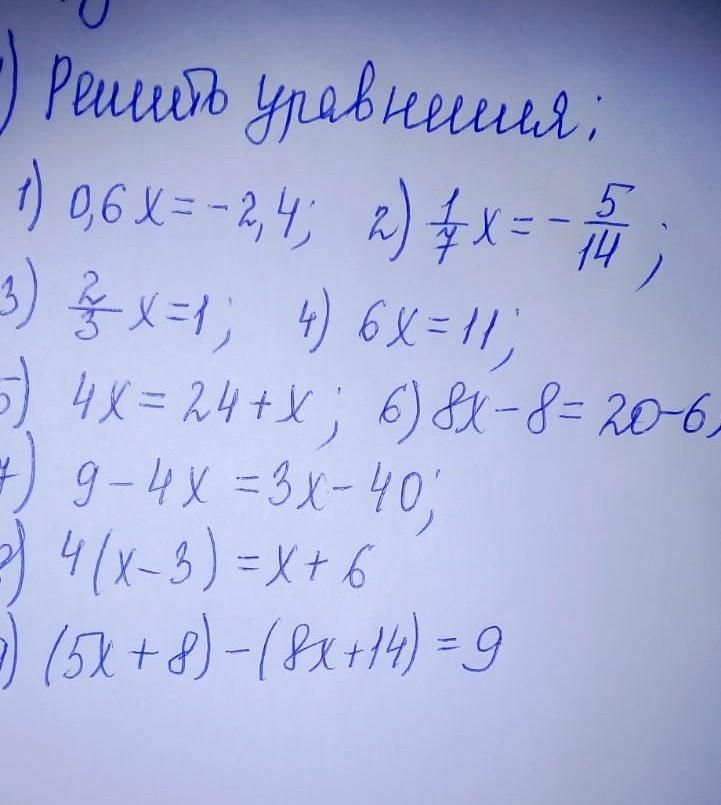 ) Решить уравнения;
1) 0,6x=-2,4; 2) 1/7 x=-5/14;
3) 2/3 x=1; 4) 6x=11;
5) 4x=24+x; 6) 8x-8=20-6
7) 9-4x=3x-40;
) 4(x-3)=x+6
) (5x+8)-(8x+14)=9